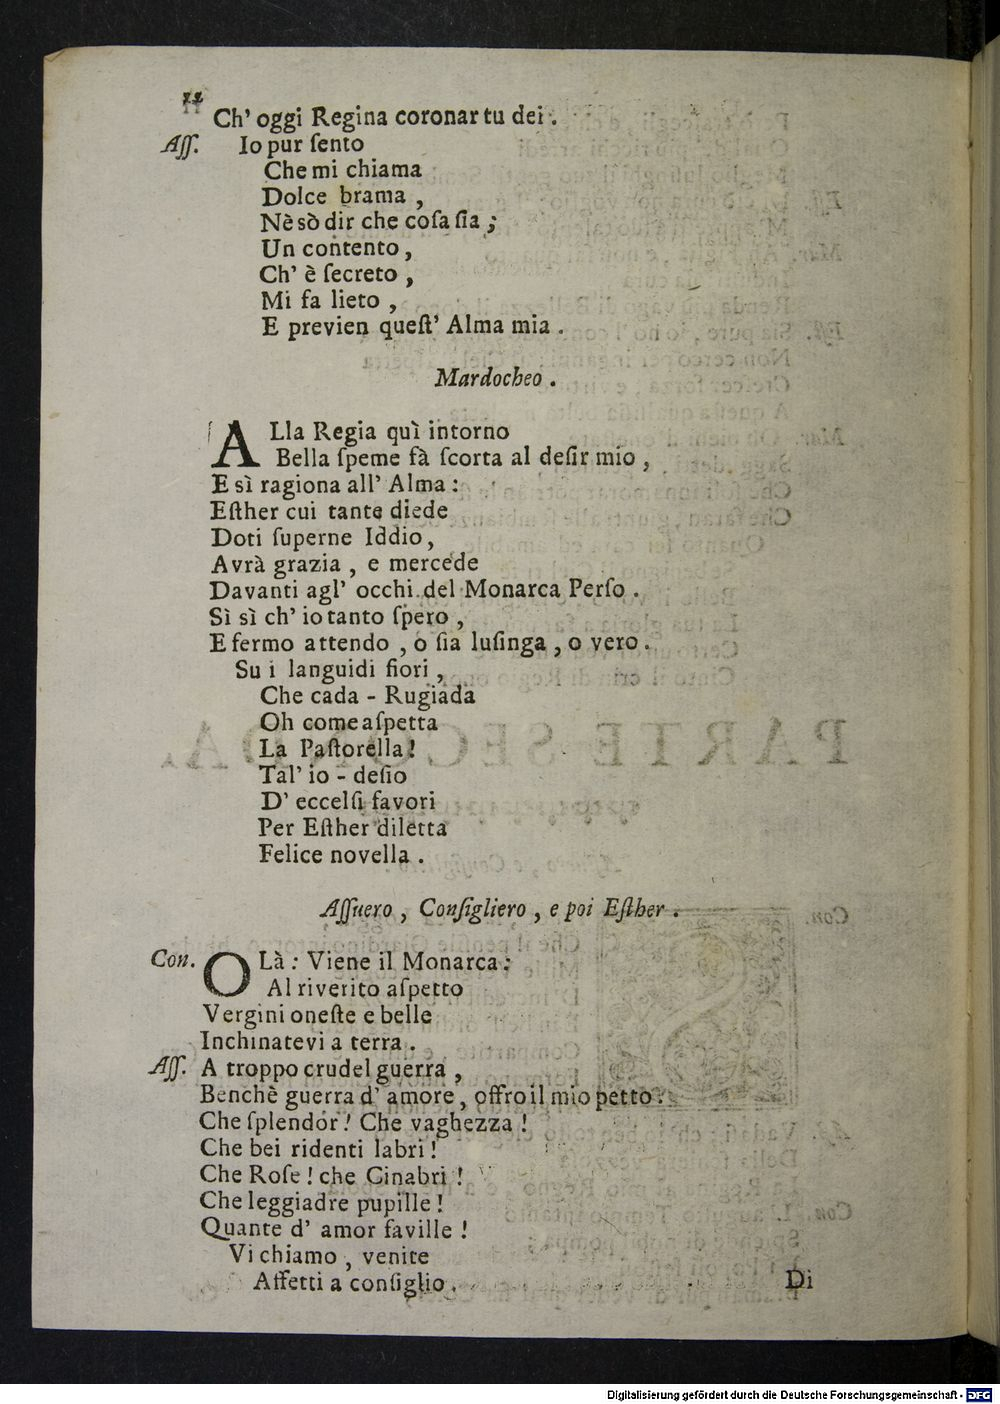 12
Ch' oggi Regina coronar tu dei .
Aſſ. Io pur ſento
Che mi chiama
Dolce brama ,
Nè sò dir che coſa ſia ;
Un contento ,
Ch' è ſecreto ,
Mi fa lieto ,
E previen queſt' Alma mia .
Mardocheo .
ALla Regia quì intorno
Bella ſpeme fà ſcorta al deſir mio ,
E sì ragiona all' Alma :
Eſther cui tante diede
Doti ſuperne Iddio ,
Avrà grazia , e mercede
Davanti agl' occhi del Monarca Perſo .
Sì sì ch' io tanto ſpero ,
E fermo attendo , o ſia luſinga , o vero .
Su i languidi fiori ,
Che cada - Rugiada
Oh come aſpetta
La Paſtorella !
Tal' io - deſio
D' eccelſi favori
Per Eſther diletta
Felice novella .
Aſſuero , Conſigliero , e poi Eſther .
Con. OLà : Viene il Monarca :
Al riverito aſpetto
Vergini oneſte e belle
Inchinatevi a terra .
Aſſ. A troppo crudel guerra ,
Benchè guerra d' amore , offro il mio petto .
Che ſplendor ! Che vaghezza !
Che bei ridenti labri !
Che Roſe ! che Cinabri !
Che leggiadre pupille !
Quante d' amor faville !
Vi chiamo , venite
Affetti a conſiglio .
Di
Digitalisierung gefördert durch die Deutsche Forschungsgemeinschaft - DFG